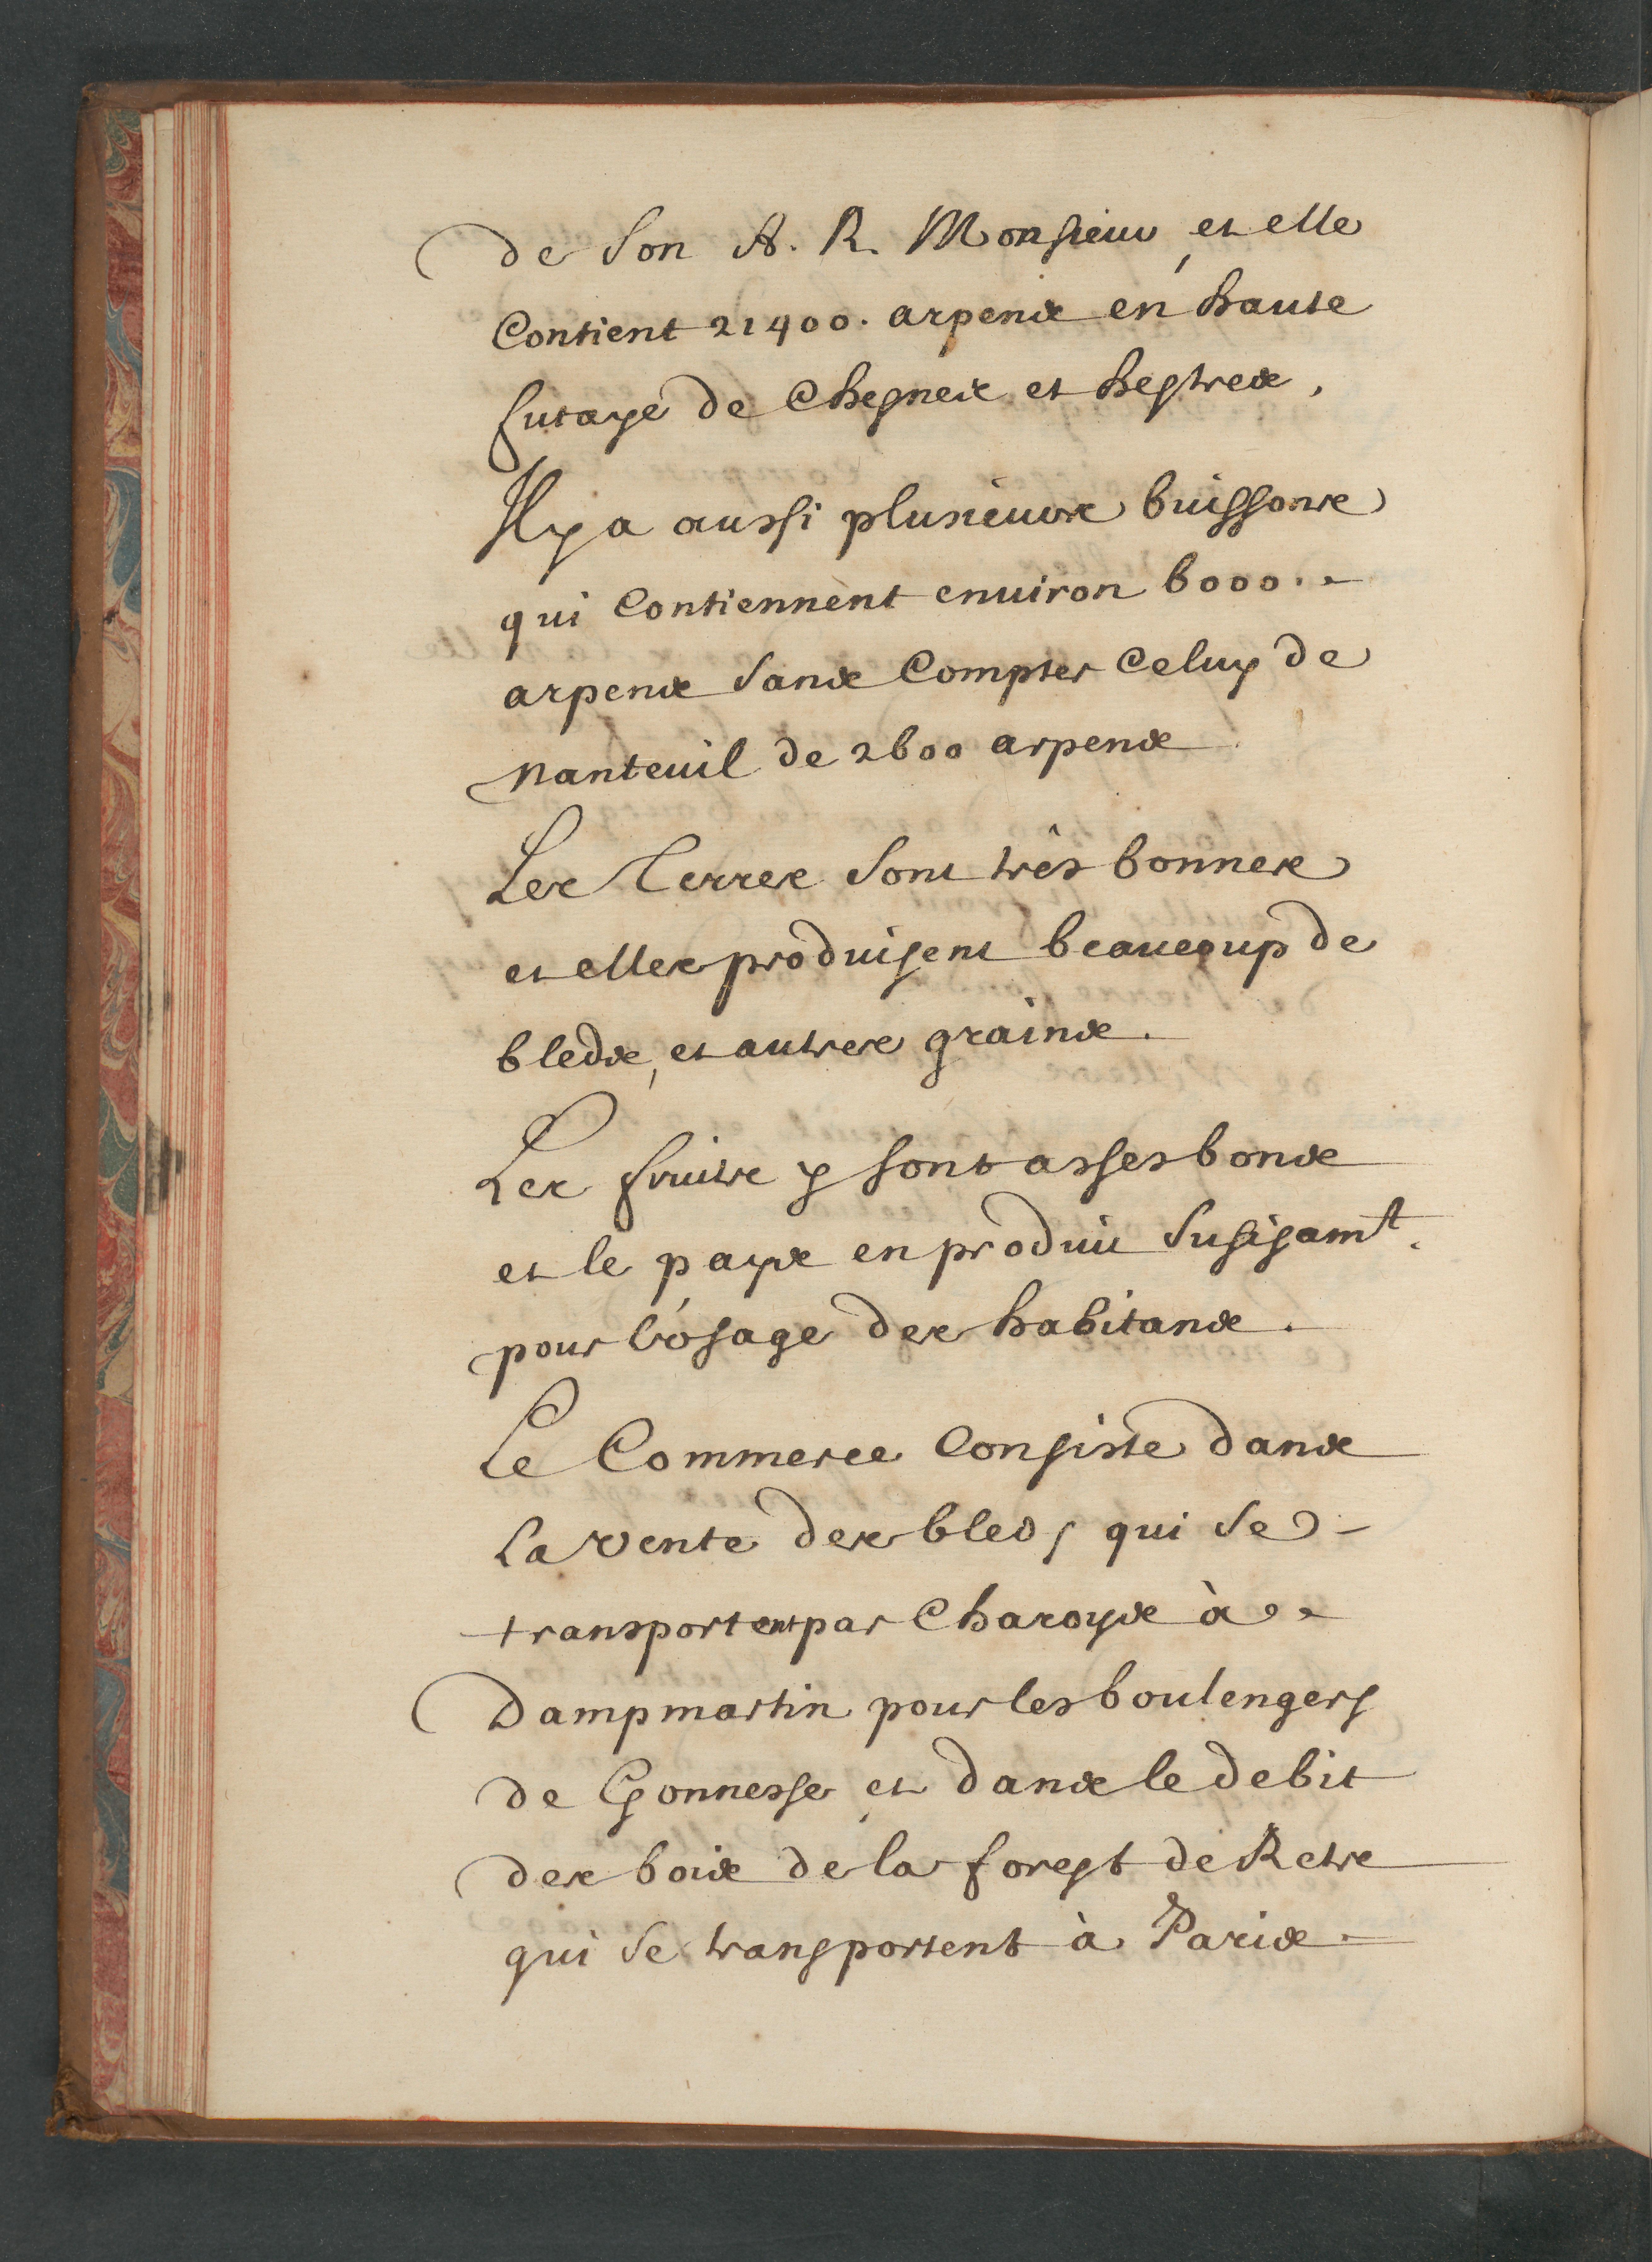 de Son A. R. Monsieur, et elle
Contient 21400. arpens en haute
futaye de Chesnes et hestres,
Il y a aussi plusieurs buissons
qui Contiennent enuiron 6000.
arpens Sans Compter Celuy de
Nanteuil de 2600 arpens
Les Terres Sont très bonnes
et elles produisent beaucoup de
bleds, et autres grains.
Les fruits y sont asses bons
et le pays en produit Sufisamt.
pour l'vsage des habitans.
Le Commerce Consiste dans
La vente des bleds qui Se
transportent par Charoys à
Dampmartin pour les boulengers
de Gonnesse, et dans le debit
des bois de la forest de Retz
qui Se transportent à Paris.